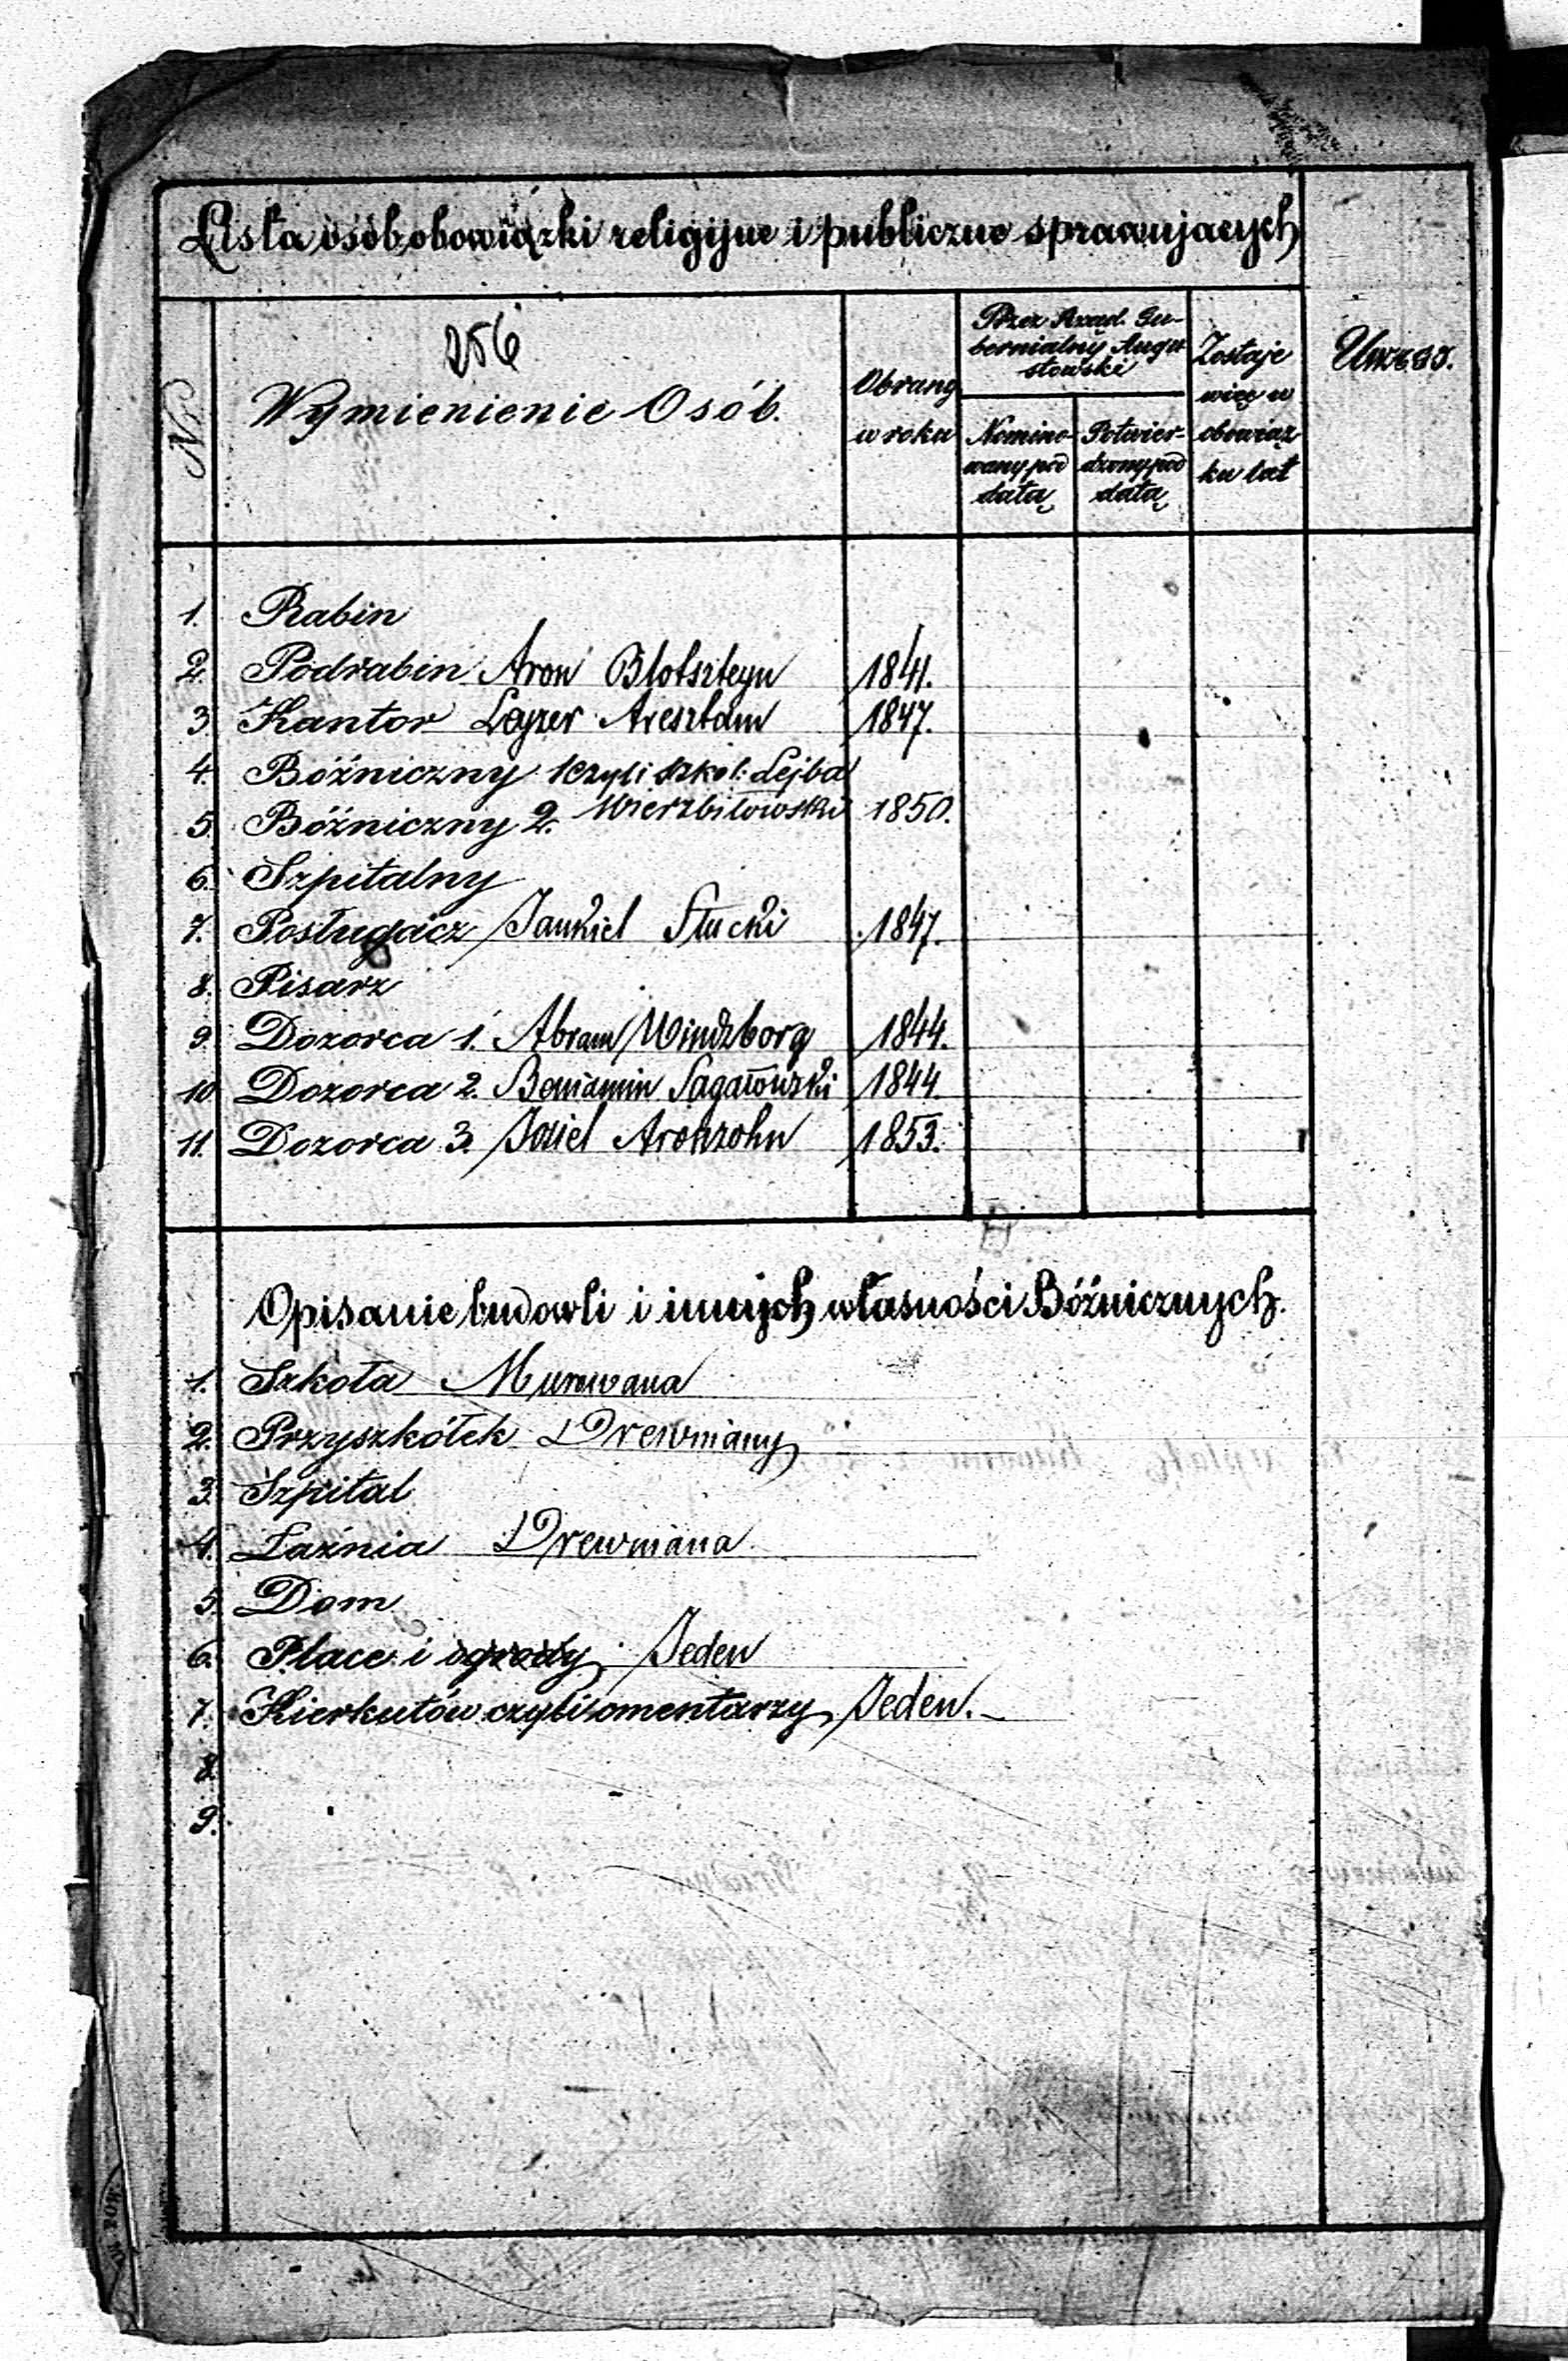 Lista osób obowiązki religijne i publiczne sprawujących
256
Nr. Wymienienie Osób. Obrany w roku Przez Rząd Gubernialny Augustowski Nominowany pod datą Potwierdzony pod datą Zostaje więc w obowiązku lat Uwagi.
1. Rabin
2. Podrabin Aron Blotszteyn 1841.
3. Kantor Leyzer Aresztam 1847.
4. Bóźniczny 1 czyli szkol: Lejba
5. Bóźniczny 2. Wierzbiłowski 1850.
6. Szpitalny
7. Posługacz Jankiel Słucki 1847.
8. Pisarz
9. Dozorca 1. Abram Windzborg 1844.
10 Dozorca 2. Beniamin Sagałowski 1844.
11. Dozorca 3. Joziel Aronzohn 1853.
Opisanie budowli i innych własności Bóźnicznych.
1. Szkoła Murowana
2. Przyszkółek Drewniany
3. Szpital
4. Łaźnia Drewniana.
5. Dom
6. Place i ogrody Jeden
7. Kierkutów czyli cmentarzy Jeden.
8.
9.